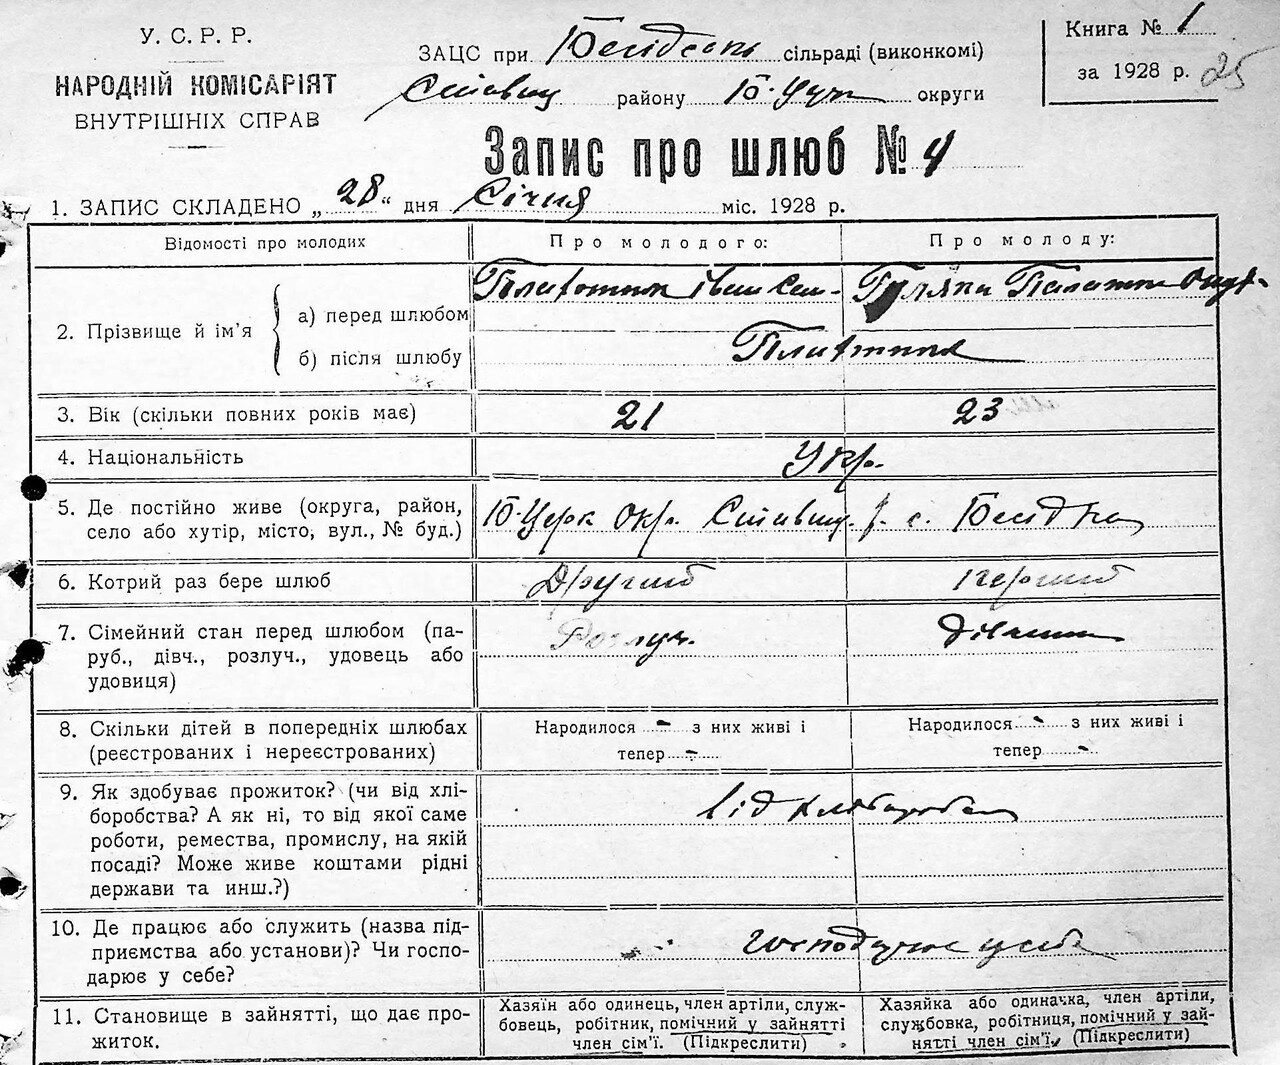 У. С. Р. Р.
НАРОДНІЙ КОМІСАРІЯТ
ВНУТРІШНІХ СПРАВ
ЗАЦС при сільраді (виконкомі)
району округи
Книга № 1
за 1928 р. 25
Запис про шлюб № 4
1. ЗАПИС СКЛАДЕНО „28“ дня Січня міс. 1928 р.
Відомості про молодих
Про молодого:
Про молоду:
2. Прізвище й ім'я
а) перед шлюбом
б) після шлюбу
3. Вік (скільки повних років має)
21
23
4. Національність
Укр.
5. Де постійно живе (округа, район,
село або хутір, місто, вул., № буд.)
Б-Церк Окр. Ставищ. р. с. Бесідка
6. Котрий раз бере шлюб
Другий
первий
7. Сімейний стан перед шлюбом (па-
руб., дівч., розлуч., удовець або
удовиця)
Розлуч.
дівчина
8. Скільки дітей в попередніх шлюбах
(реєстрованих і нереєстрованих)
Народилося - з них живі і
тепер -
Народилося - з них живі і
тепер -
9. Як здобуває прожиток? (чи від хлі-
боробства? А як ні, то від якої саме
роботи, ремества, промислу, на якій
посаді? Може живе коштами рідні
держави та инш.?)
Від хліборобства
10. Де працює або служить (назва під-
приємства або установи)? Чи госпо-
дарює у себе?
у себе
11. Становище в зайнятті, що дає про-
житок.
Хазяїн або одинець, член артіли, служ-
бовець, робітник, помічний у зайнятті
член сім'ї. (Підкреслити)
Хазяйка або одиначка, член артіли,
службовка, робітниця, помічний у зай-
нятті член сім'ї (Підкреслити)